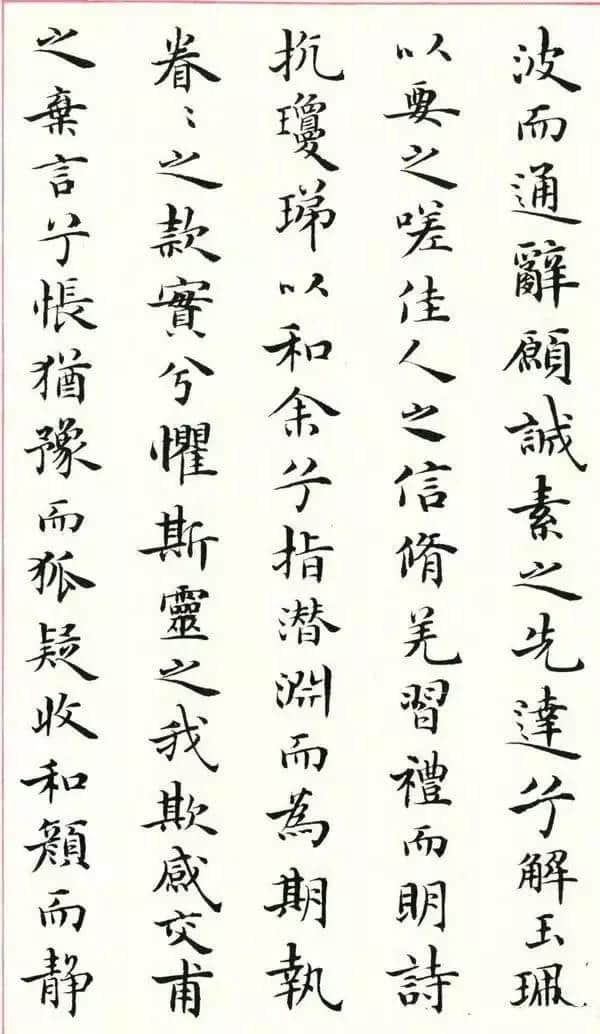 波而通辭願誠素之先達兮解玉珮
以要之嗟佳人之信脩羌習禮而明詩
抗瓊珶以和余兮指潜淵而為期執
眷〻之款實兮懼斯靈之我欺感交甫
之棄言兮悵猶豫而狐疑收和顏而静